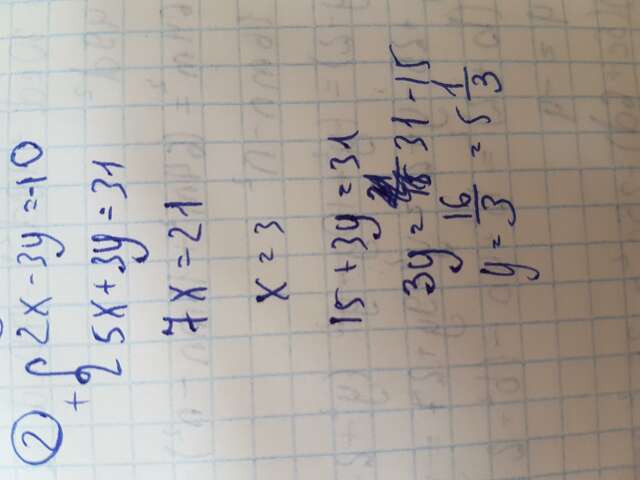 2
+ { 2x - 3y = -10
5x + 3y = 31
7x = 21
x = 3
15 + 3y = 31
3y = 31 - 15
y = 16/3 = 5 1/3